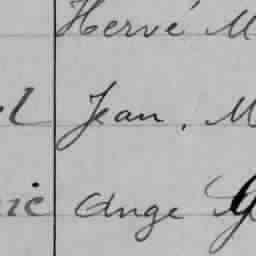 Hervé M
el Jean, M
nie Ange G